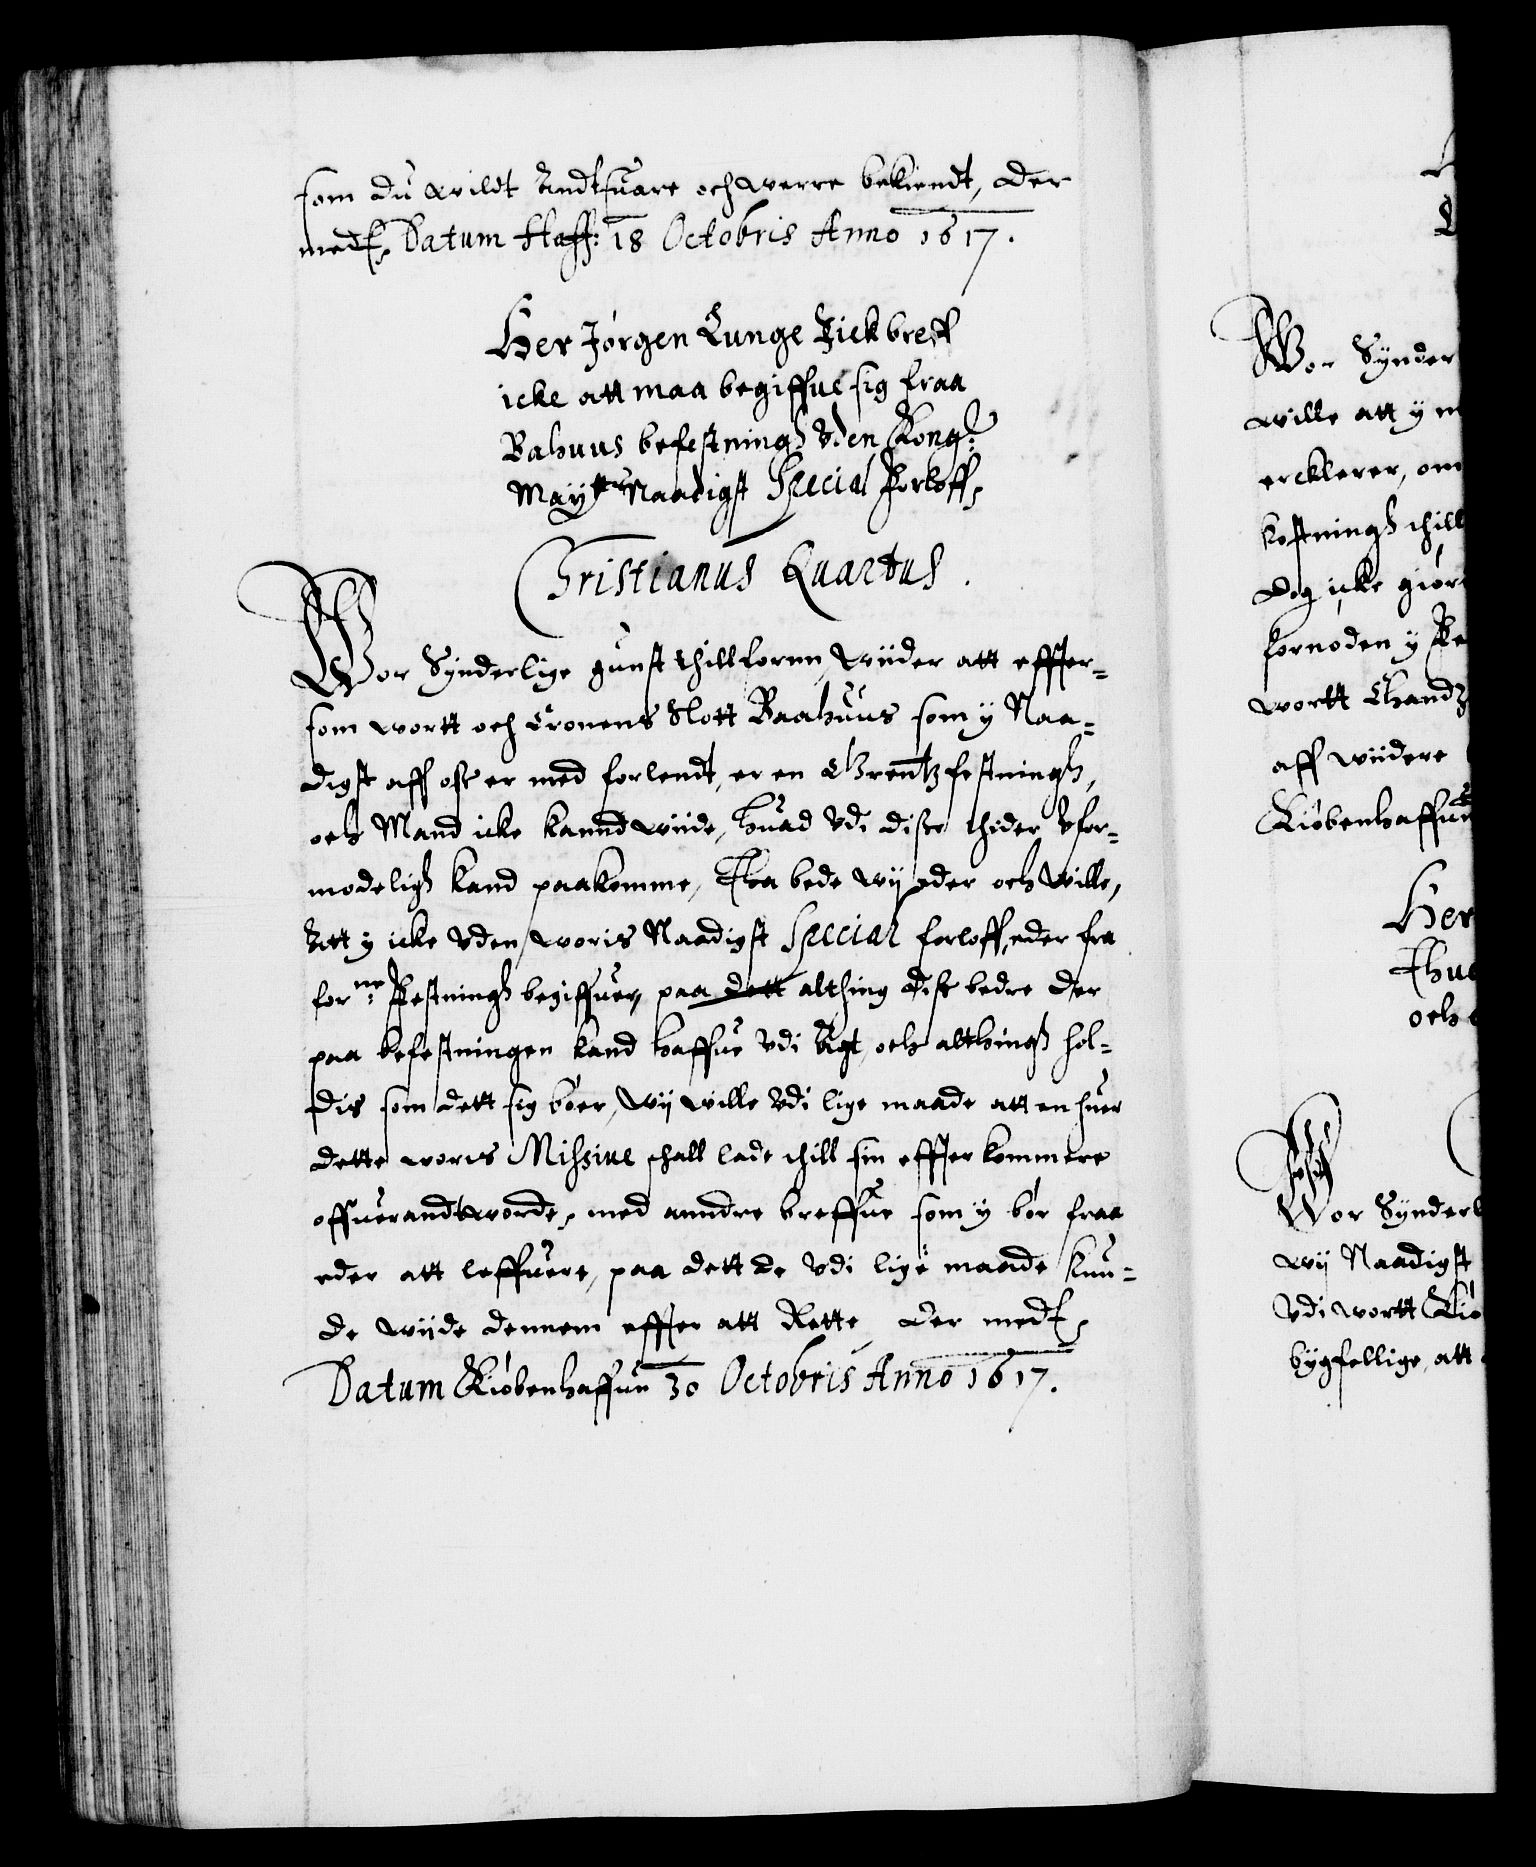 som du wildt Andtsuare och werre bekiendt, Der
medt Datum Haff: 18 Octobris Anno 1617.
Her Jörgen Lunge Fick breff
icke att maa begiffue sig fraa
Bahuus befestningh Vden Kong:
Maytts Naadigst Special Forloff,
Christianus Quartus.
Wor Synderlige gunst thillfornn, Wiider att effter-
som wortt och Cronens Slott Baahuus som y Naa-
digst aff oss er med forlendt, er en Grentzfestningh,
och Mand icke kannd wiide, huad Vdi disse thider Vfor-
modeligh kand paakomme, Tha bede wij eder och wille,
Att y icke Vden woris Naadigst Special forloff, eder fra
forne: Festningh begiffuer, paa dett althing disse bedre der
paa befestningen kand haffue Vdi Agt, och althingh hol-
dis som dett sig böer, Wij wille Vdi lige maade att en huer
dette woris Missiue schall lade thill sin effterkommere
offuerandtworde, med anndre breffue som y bör fraa
eder att leffuere, paa dett de Vdi lige maade kun-
de wiide dennem effter att Rette Der medt
Datum Kiöbenhaffun 30 Octobris Anno 1617.
Wor Synder
wille att y
erklerer, om
kostningh thill
dog icke giör
fornöden y
wortt
aff wiidere
Kiöbenhaffue
Her
Thue
och
Wor Synderl
wij Naadigst
Vdi wortt Kiö
bygfellige, att